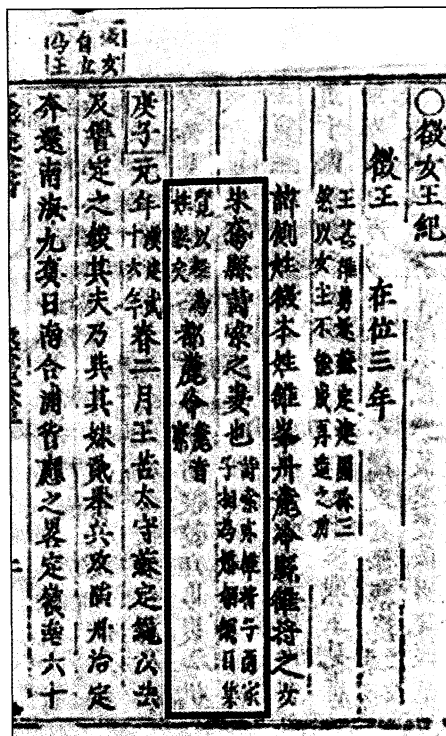 徵女
自立
為王
○徵女王紀
徵王 在位三年
王甚雄勇逐蘇定建國稱王
然以女主不能成再造之功
諱側姓徵本姓雒峯州麊泠縣雒將之女
朱鳶縣詩索之妻也詩索亦雒將子兩家
子相為婚姻綱目集
覽以經為
姓誤矣都麊泠麊音
庚子元年漢建武
十六年春二月王苦太守蘇定繩以法
及讐定之殺其夫乃與其妹貳舉兵攻陷州治定
奔還南海九真日南合浦皆應之畧定嶺南六十